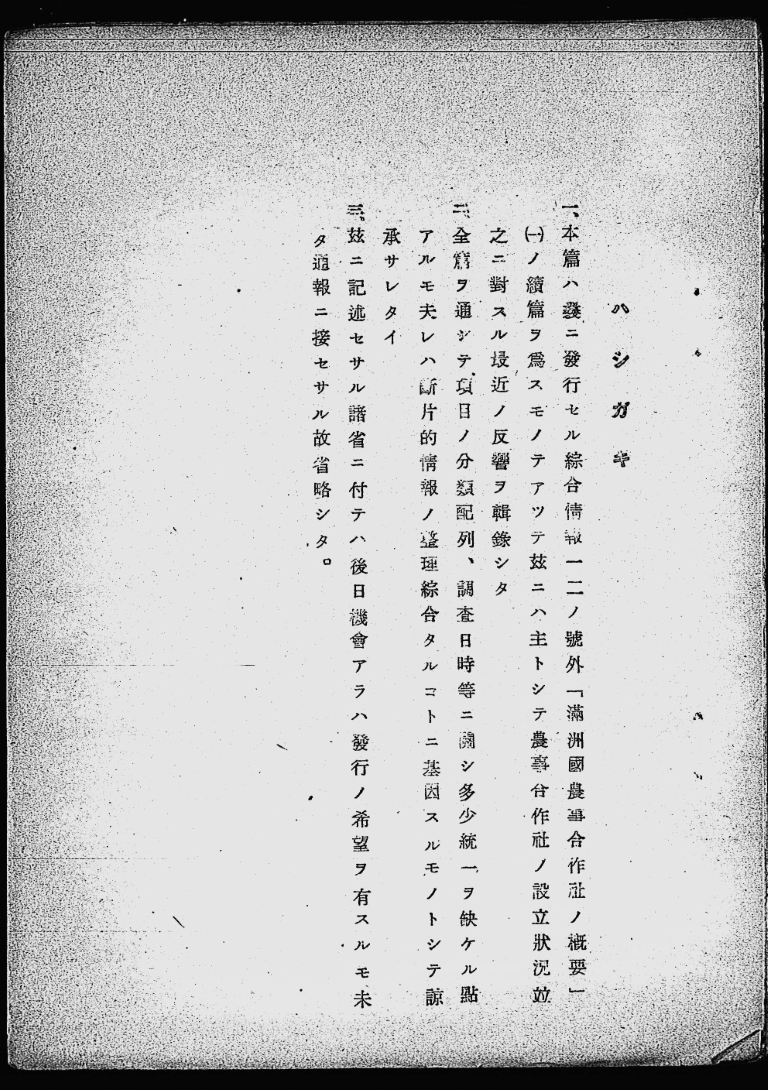 ハシガキ
一、本篇ハ曩ニ發行セル綜合情報一二ノ號外「滿洲國農事合作社ノ概要」
㈠ノ續篇ヲ爲スモノテアツテ玆ニハ主トシテ農事合作社ノ設立狀況竝
之ニ對スル最近ノ反響ヲ輯錄シタ
二、全篇ヲ通シテ項目ノ分類配列、調査日時等ニ關シ多少統一ヲ缺ケル點
アルモ夫レハ斷片的情報ノ整理綜合タルコトニ基因スルモノトシテ諒
承サレタイ
三、玆ニ記述セサル諸省ニ付テハ後日機會アラハ發行ノ希望ヲ有スルモ未
タ通報ニ接セサル故省略シタ。